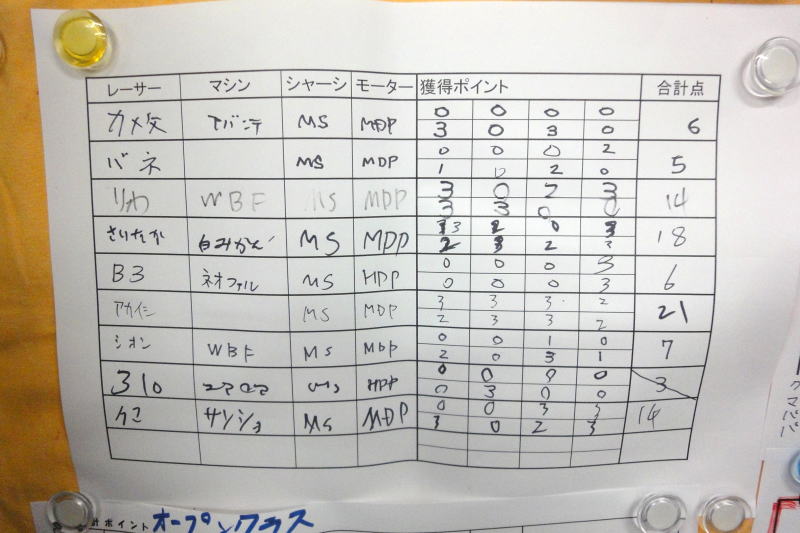 レーサー マシン シャーシ モーター 獲得ポイント 合計点
カメ友 アバンテ MS MDP 0 0 0 0 6
3 0 3 0
バネ MS MDP 0 0 0 2 5
1 0 2 0
りわ WBF MS MDP 3 0 2 3 14
3 3 0 0
さいたか 白みかん MS MDP 3 2 0 3 18
2 3 2 3
B3 ネオファル MS MDP 0 0 0 3 6
0 0 0 3
アカイシ MS MDP 3 3 3 2 21
2 3 3 2
シオン WBF MS MDP 0 0 1 0 7
2 0 3 1
310 MS MDP 0 0 0 0 3
0 3 0 0
ケニ サンショ MS MDP 0 0 3 3 14
3 0 2 3
計ポイント オープンクラス
クマパパ